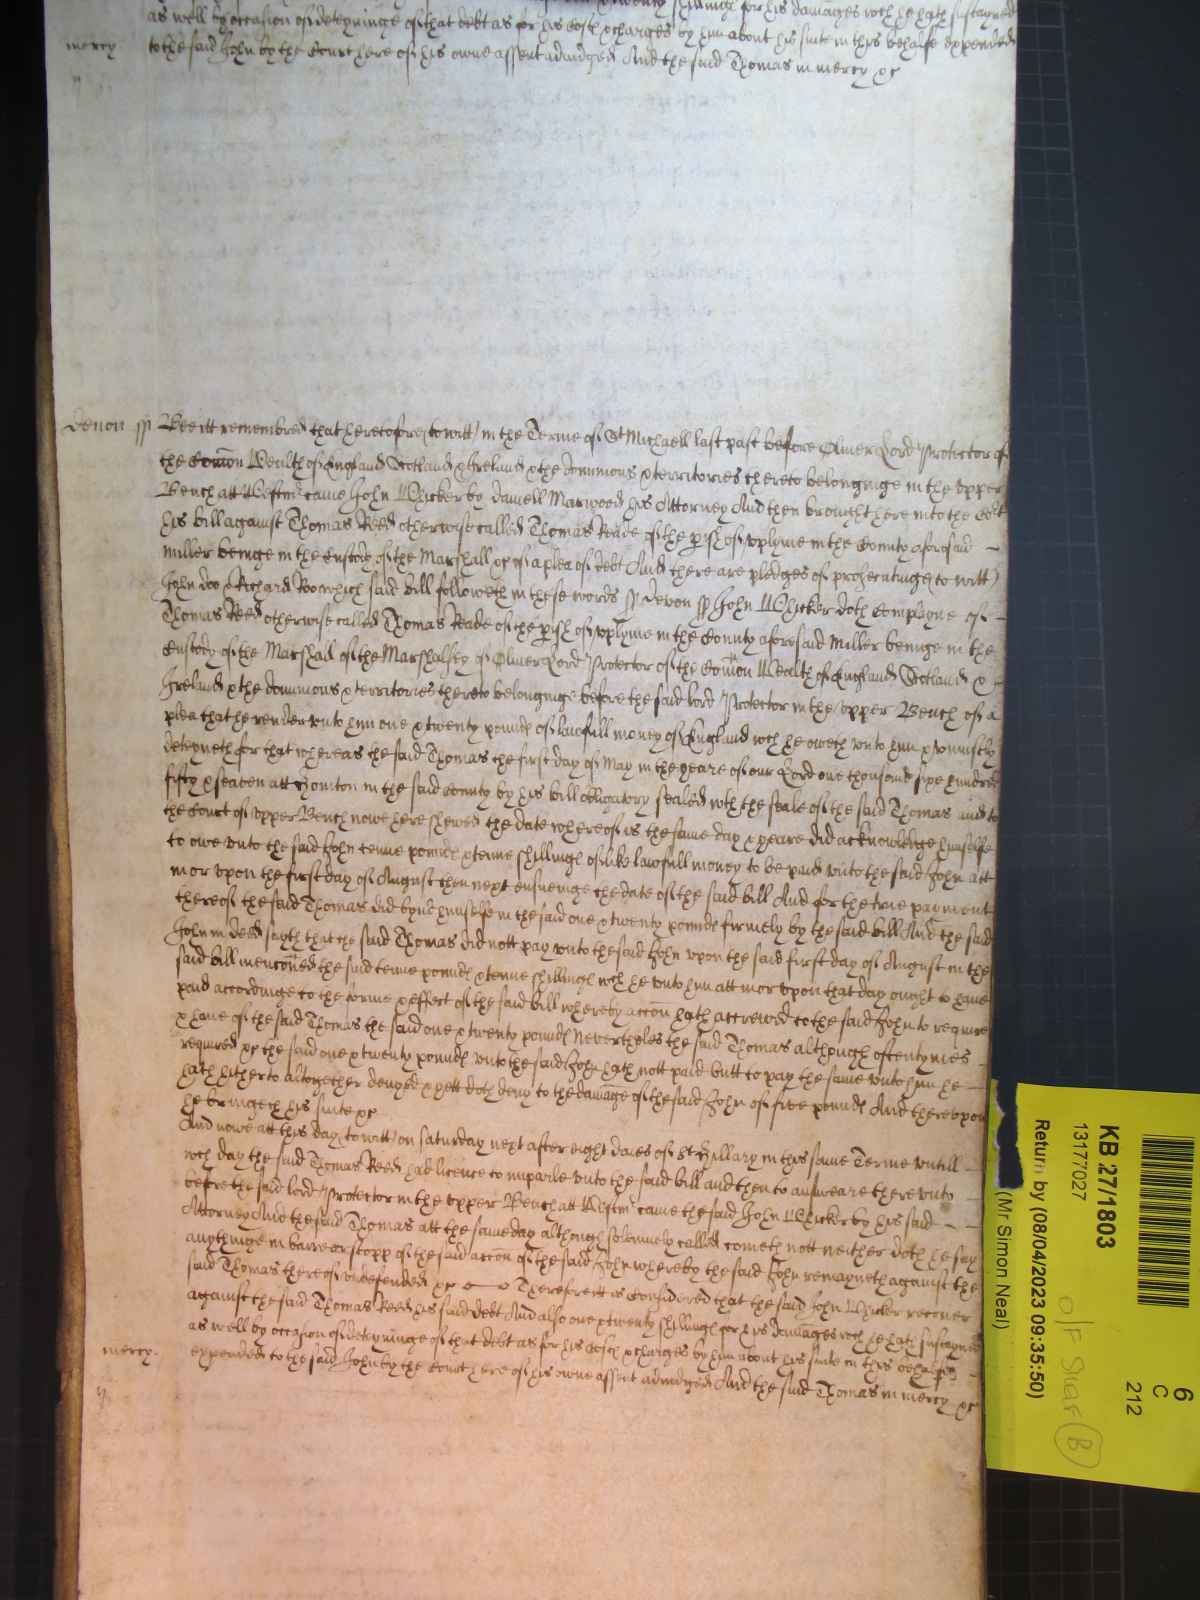 twenty shillings for his damages wch he hath sustayned
as well by occasion of deteyninge of that debt as for his Costs & charges by him about his suite in this behalfe expended
mercy to the said John by the Court here of his owne assent adiudged And the said Thomas in mercy &c
Devon ss Bee itt remembred that heretofore (to witt) in the Terme of St Michaell last past before Oliver Lord Protector of
the Comon Wealth of England Scotland & Ireland & the dominions & territories thereto belonginge in the upper
Bench att Westmr came John Whicker by Daniell Marwood his Attorney And then brought here into the Cort
his bill against Thomas Reed otherwise called Thomas Reade of the pish of uplyme in the County aforesaid
Miller beinge in the Custody of the Marshall &c of a plea of debt And there are pledges of prosecutinge (to witt)
John doo & Richard Roo which said bill followeth in these words ss Devon ss John Whicker doth Complayne of
Thomas Reed otherwise called Thomas Reade of the pish of uplyme in the County aforesaid Miller beinge in the
Custody of the Marshall of the Marshalsey of Oliver Lord Protector of the Comon Wealth of England Scotland &
Ireland & the dominions & territories thereto belonginge before the said lord Protector in the upper Bench of a
plea that he render unto him one & twenty pounds of lawfull money of England wch he oweth unto him & uniustly
deteyneth for that whereas the said Thomas the first day of May in the yeare of our Lord one thousand sixe hundred
fifty & seaven att Honiton in the said County by his bill obligatory sealed wth the seale of the said Thomas and to
the Court of upper Bench nowe here shewed the date whereof is the same day & yeare did acknowledge himselfe
to owe unto the said John tenne pounds & tenne shillings of like lawfull money to be paid unto the said John att
mor upon the first day of August then next ensueinge the date of the said bill And for the true payment
thereof the said Thomas did bynd himselfe in the said one & twenty pounds firmely by the said bill And the said
John in deed sayth that the said Thomas did nott pay unto the said John upon the said first day of August in the
said bill menconed the said tenne pounds & tenne shillings wch he unto him att mor upon that day ought to have
paid accordinge to the forme & effect of the said bill whereby accon hath accrewed to the said John to require
& have of the said Thomas the said one & twenty pounds Neverthelesse the said Thomas although oftentymes
required &c the said one & twenty pounds unto the said John hath nott paid butt to pay the same unto him he
hath hitherto altogether denyed & yett doth deny to the damage of the said John of five pounds And thereupon
he bringeth his suite &c
And nowe att this day (to witt) on Saturday next after eight daies of St Hillary in this same Terme untill
wch day the said Thomas Reed had licence to imparle unto the said bill and then to answeare thereunto
before the said lord Protector in the upper Bench att Westmr came the said John Whicker by his said
Attorney And the said Thomas att the same day although solemnely called cometh nott neither doth he say
anythinge in barre or stopp of the said accon of the said John whereby the said John remayneth against the
said Thomas thereof undefended &c Therefore itt is Considered that the said John Whicker recover
against the said Thomas Reed his said debt And also one & twenty shillings for his damages wch he hath sustayned
as well by occasion of deteyninge of that debt as for his Costs & charges by him about his suite in this behalfe
mercy. expended to the said John by the Court here of his owne assent adiudged And the said Thomas in mercy &c
6
C
212
KB 27/1803
13177027
O/F Shar (B)
Return by (08/04/2023 09:35:50)
(Mr Simon Neal)